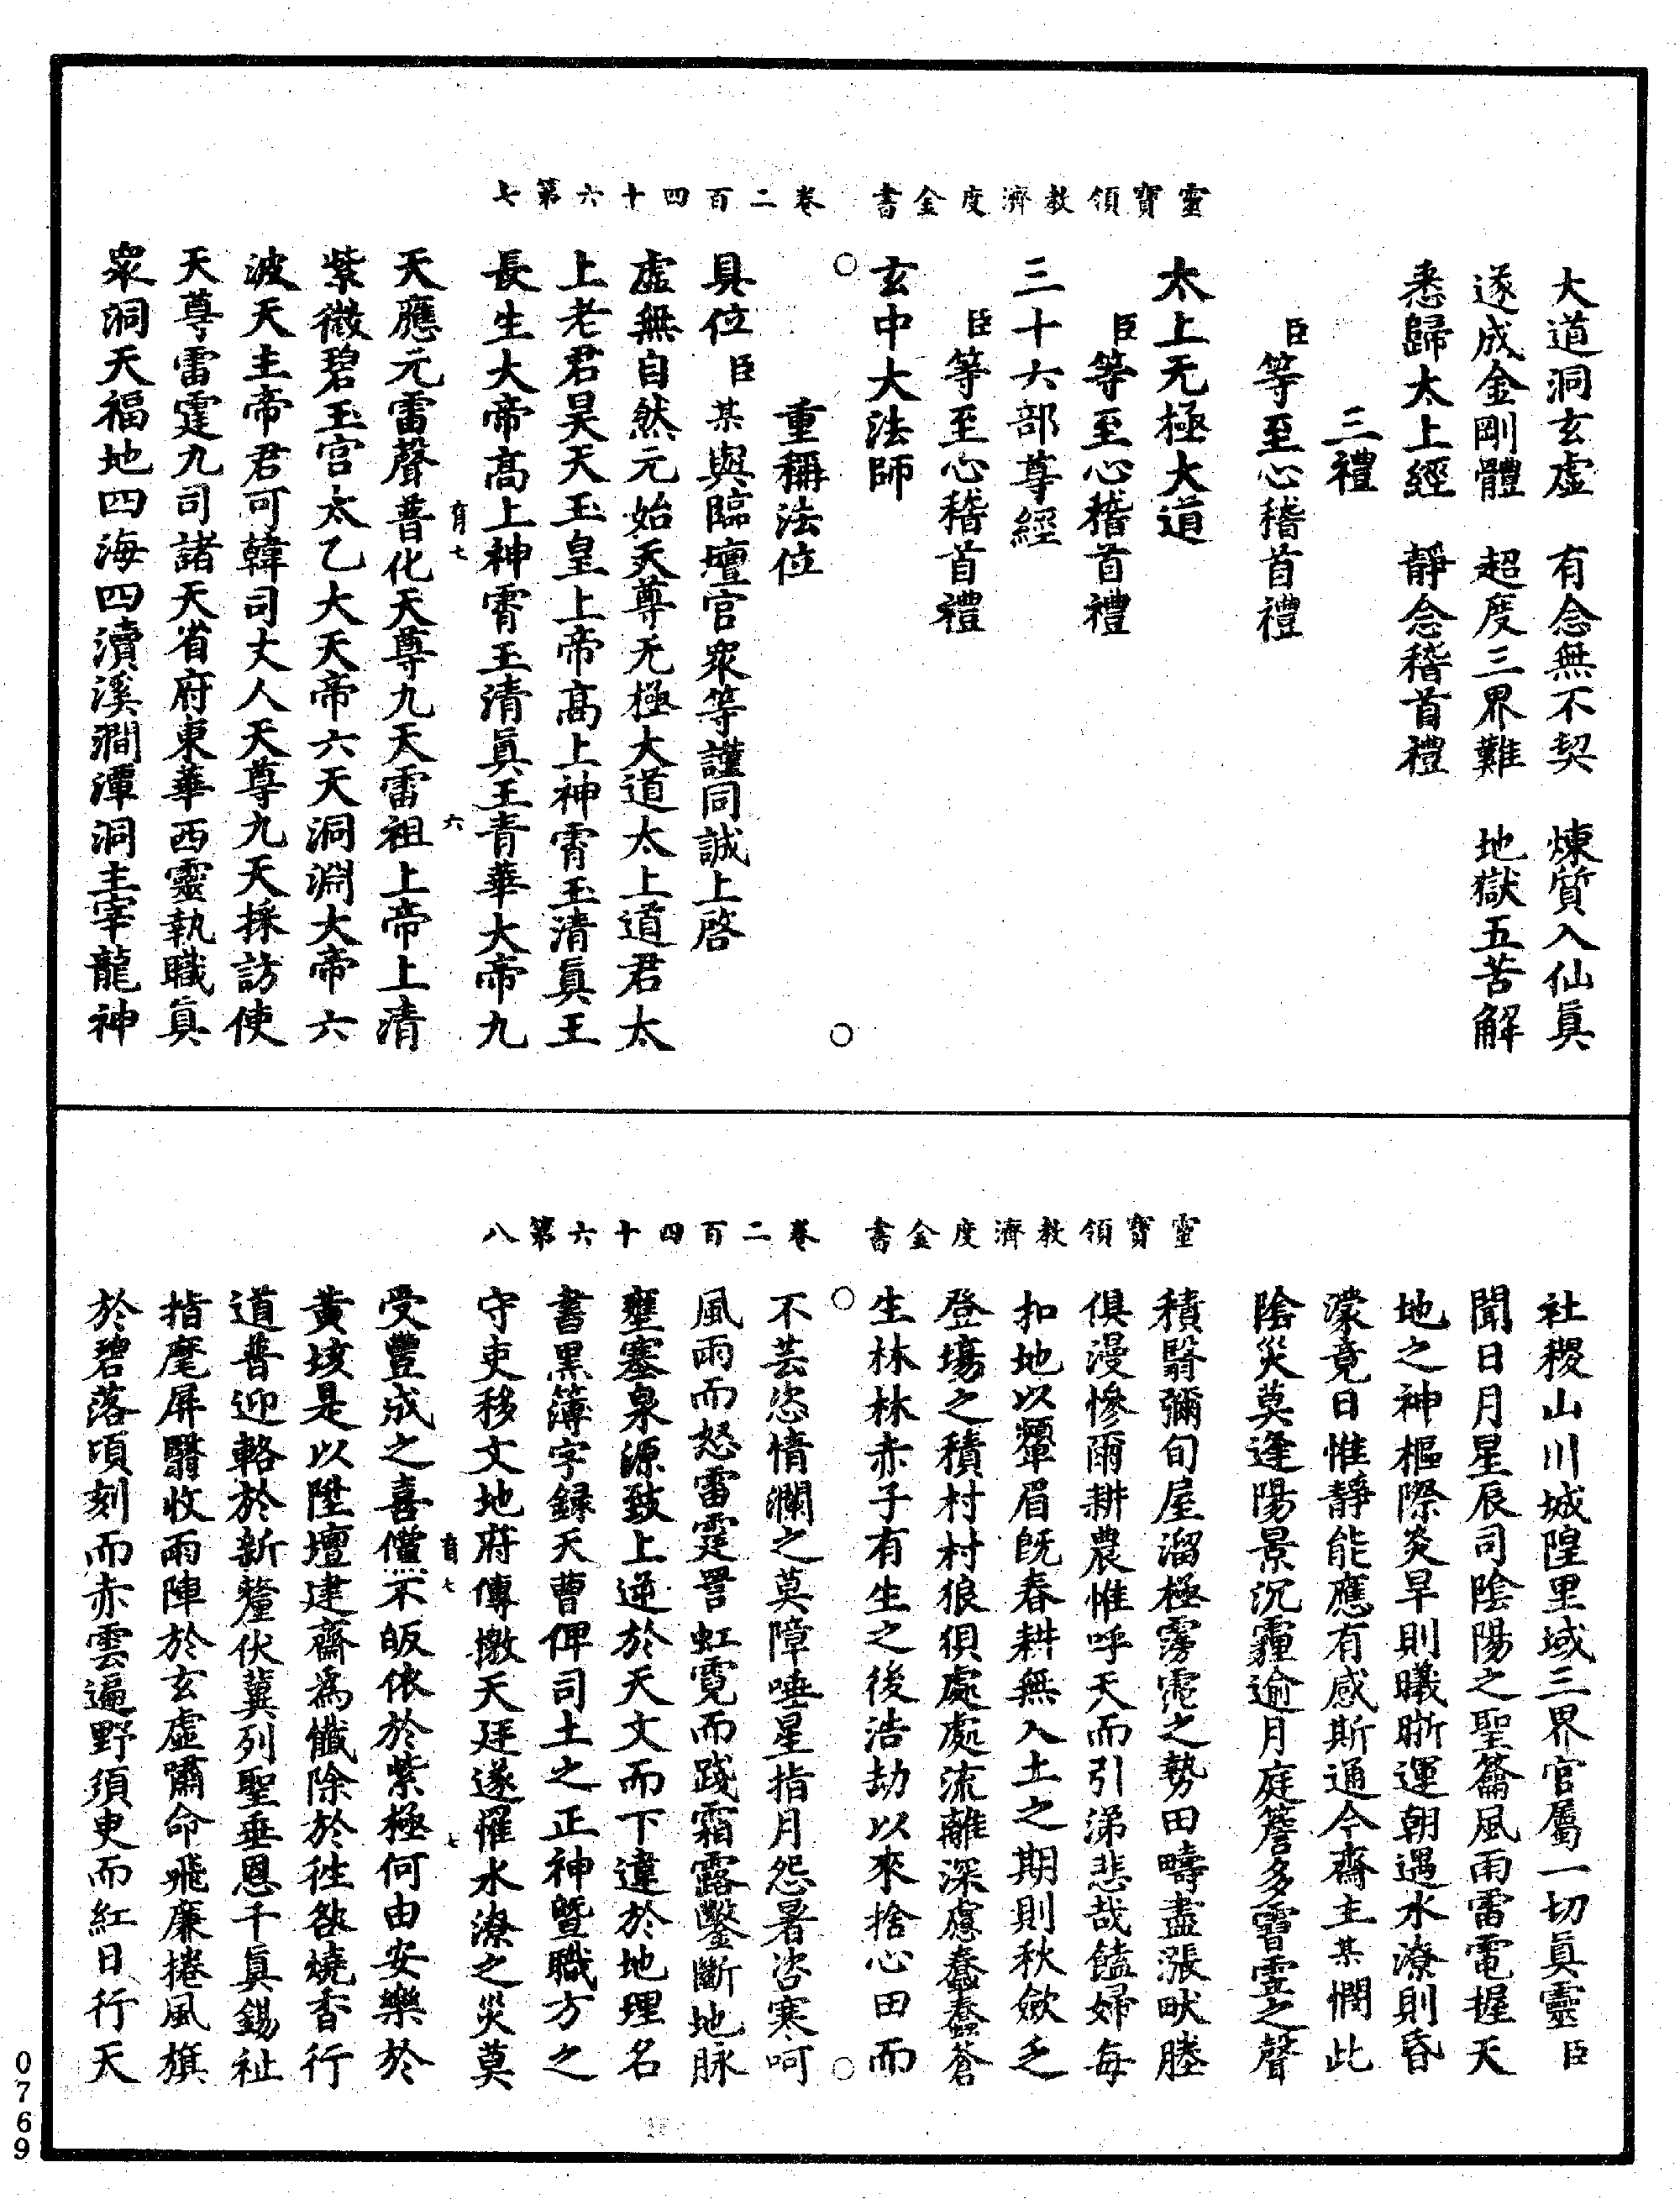 靈寶領教濟度金書　卷二百四十六第七
大道洞玄虛　有念無不契　煉質入仙真
遂成金剛體　超度三界難　地獄五苦解
悉歸太上經　靜念稽首禮
三禮
臣等至心稽首禮
太上无極大道
臣等至心稽首禮
三十六部尊經
臣等至心稽首禮
玄中大法師
重稱法位
具位臣某與臨壇官眾等謹同誠上啓
虛無自然元始天尊无極大道太上道君太
上老君昊天玉皇上帝高上神霄玉清真王
長生大帝高上神霄玉清真王青華大帝九
天應元雷聲普化天尊九天雷祖上帝上清
紫微碧玉宮太乙大天帝六天洞淵大帝六
波天主帝君可韓司丈人天尊九天採訪使
天尊雷霆九司諸天省府東華西靈執職真
眾洞天福地四海四瀆溪澗潭洞主宰龍神
有七
六
靈寶領教濟度金書　卷二百四十六第八
社稷山川城隍里域三界官屬一切真靈臣
聞日月星辰司陰陽之聖籥風雨雷電握天
地之神樞際炎旱則曦晰運朝遇水潦則昏
濛竟日惟靜能應有感斯通今齋主某憫此
陰災莫逢陽景沉霾逾月庭簷多霤霔之聲
積翳彌旬屋溜極雱霈之勢田疇盡漲畎塍
俱漫慘爾耕農惟呼天而引涕悲哉饁婦每
扣地以顰眉既春耕無入土之期則秋斂乏
登場之積村村狼狽處處流離深慮蠢蠢蒼
生林林赤子有生之後浩劫以來捨心田而
不芸恣情瀾之莫障唾星指月怨暑咨寒呵
風雨而怒雷霆詈虹霓而踐霜露鑿斷地脉
壅塞泉源致上逆於天文而下違於地理名
書黑簿字録天曹俾司土之正神曁職方之
守吏移文地府傳檄天廷遂罹水潦之災莫
受豐成之喜儻不皈依於紫極何由安樂於
黃垓是以陞壇建齋為懺除於徃咎燒香行
道普迎輅於新釐伏冀列聖垂恩千真錫祉
指麾屏翳收雨陣於玄虛嘯命飛廉捲風旗
於碧落頃刻而赤雲遍野須臾而紅日行天
有七
七
0769